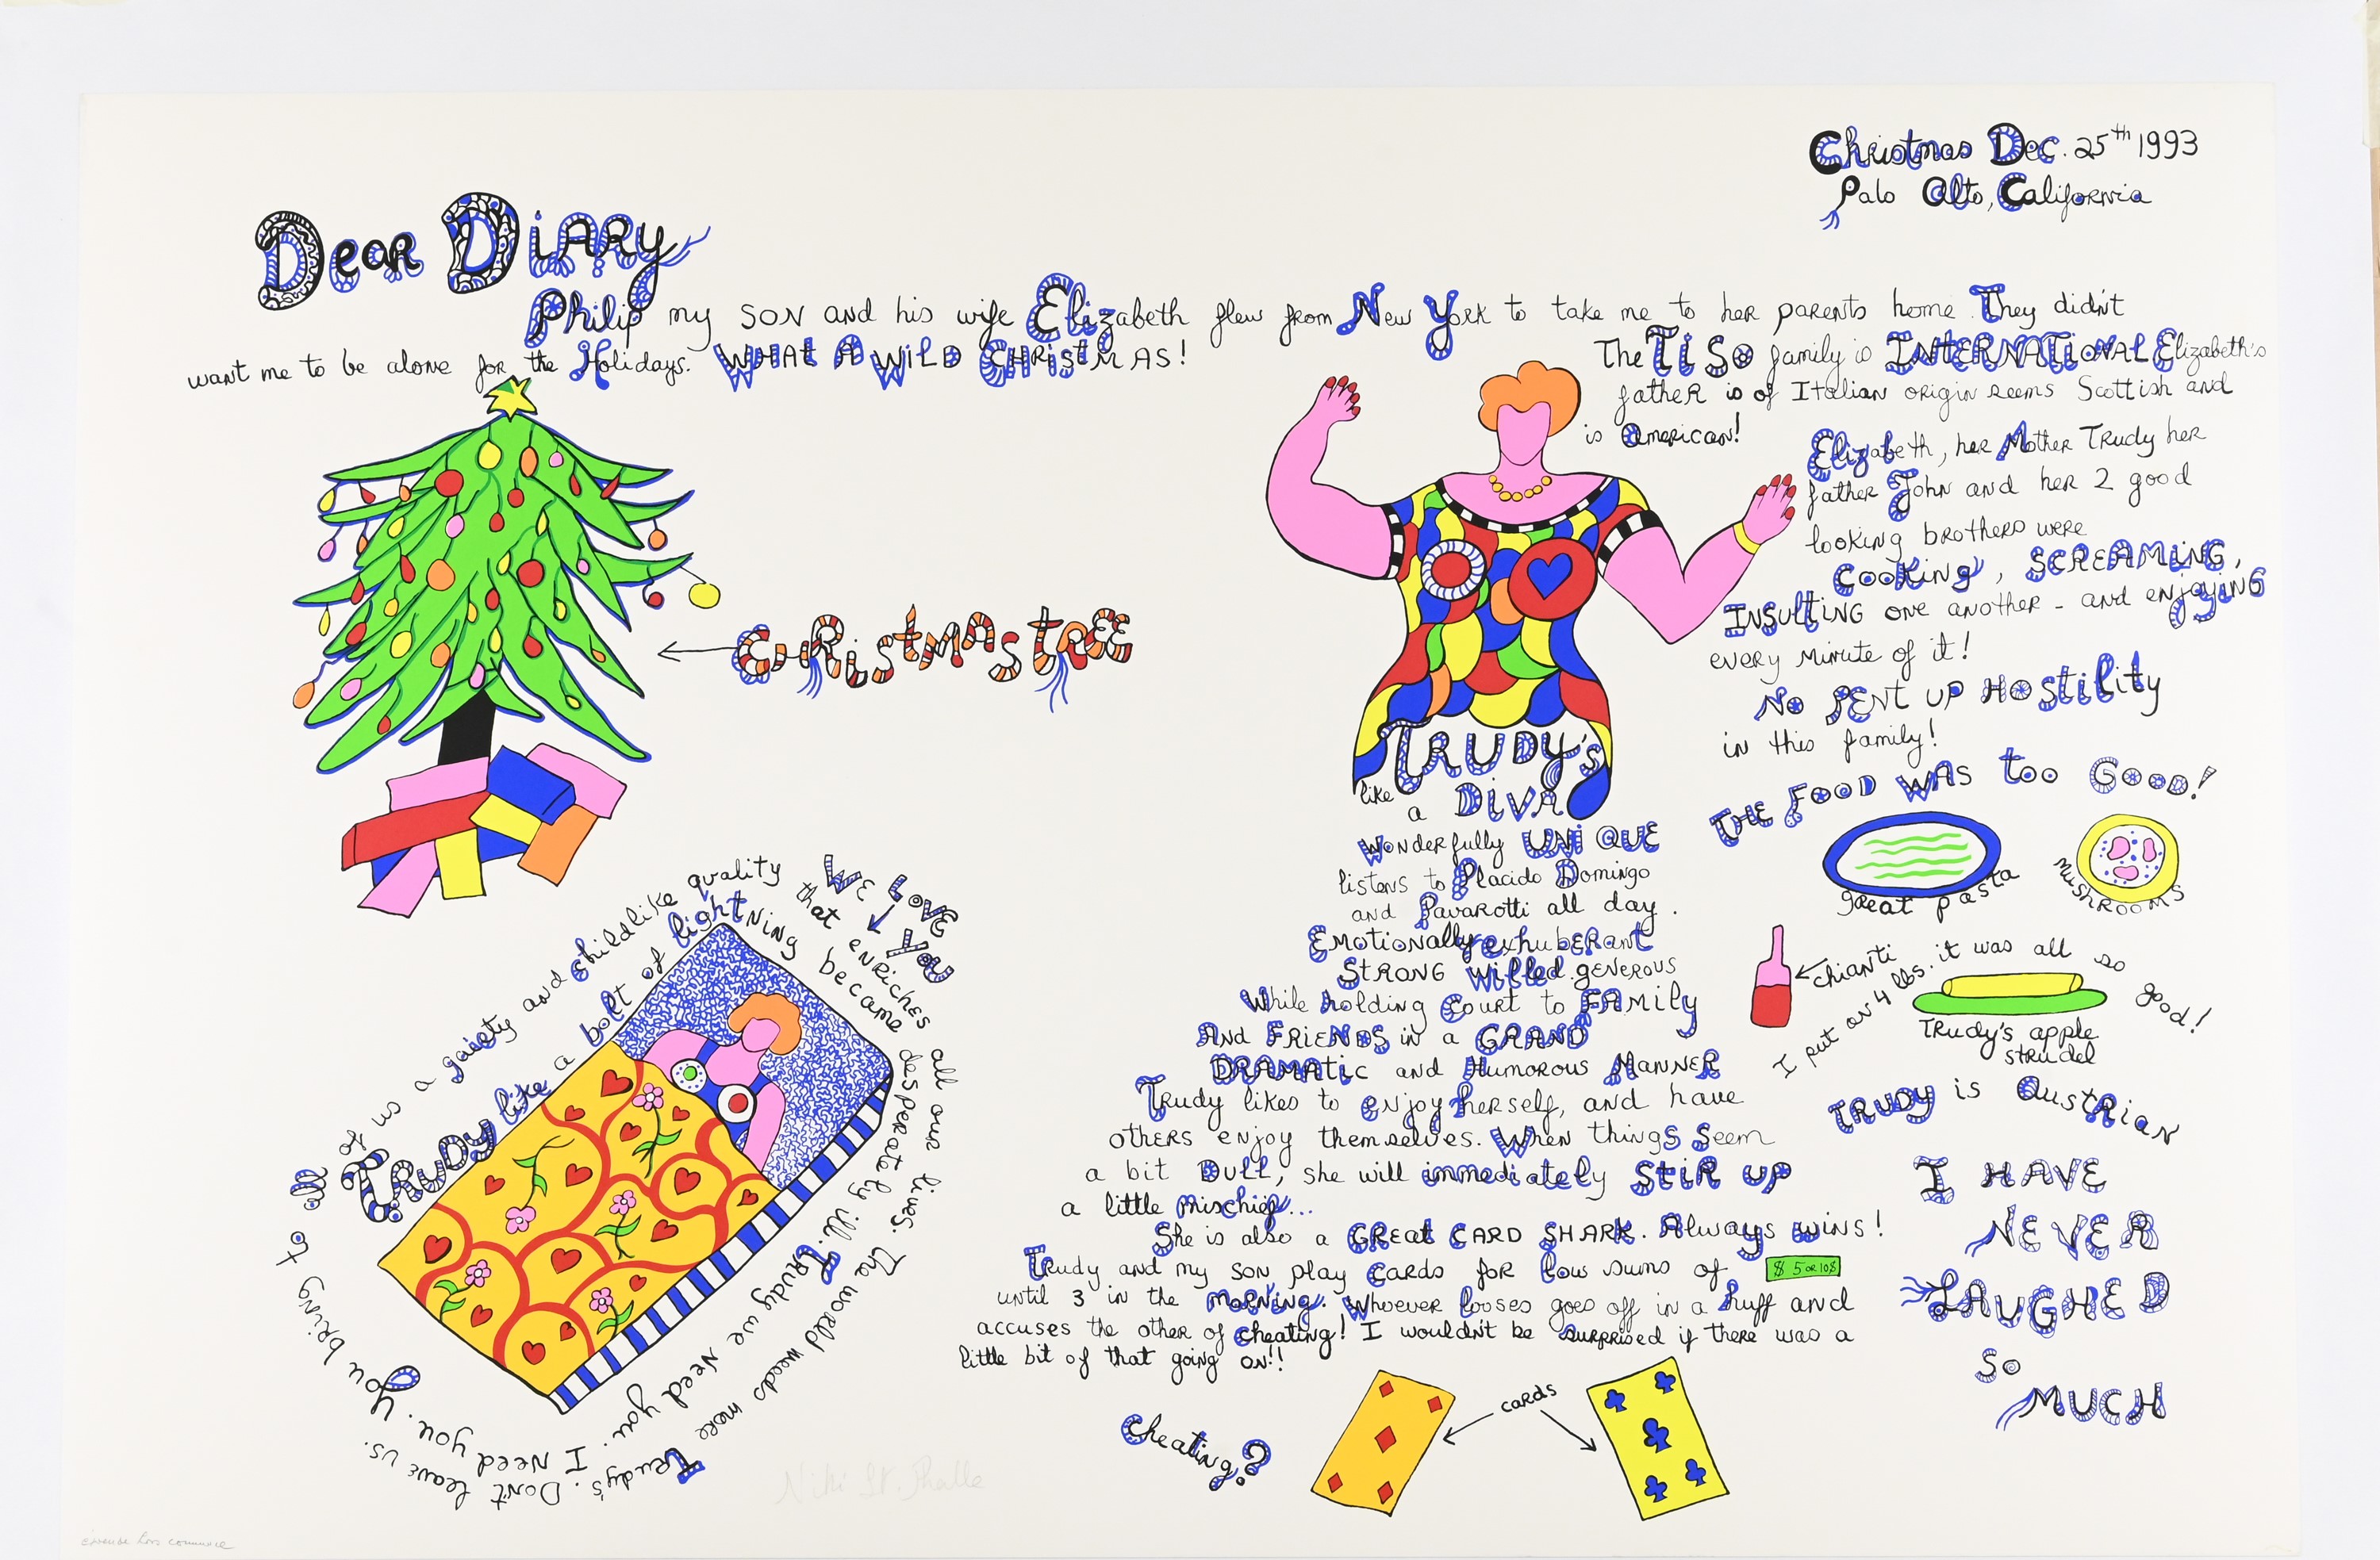 Christmas Dec. 25th 1993
Palo Alto, California
Dear Diary
Philip my son and his wife Elizabeth flew from New York to take me to her parents home. They didn't
want me to be alone for the Holidays. WHAT A WILD CHRISTMAS!
The TiSo family is INTERNATIONAL Elizabeth's
father is of Italian origin seems Scottish and
is American!
Elizabeth, her Mother Trudy her
father John and her 2 good
looking brothers were
Cooking, SCREAMING,
INSULTING one another - and enjoying
every minute of it!
No PENT UP HOSTILITY
in this family!
THE FOOD WAS too GOOD!
great pasta
MUSHROOMS
chianti
I put on 4 lbs. it was all so good!
Trudy's apple
strudel
TRUDY is Austrian
I HAVE
NEVER
LAUGHED
So
MUCH
CHRISTMAS TREE
TRUDY'S
like a DIVA
Wonderfully UNIQUE
listens to Placido Domingo
and Pavarotti all day.
Emotionally exhuberant
STRONG willed generous
While holding Court to FAMily
And FRIENDS in a GRAND
DRAMATic and Humorous MANNER
Trudy likes to enjoy herself, and have
others enjoy themselves. When things seem
a bit DULL, she will immediately STIR UP
a little mischief...
She is also a GREAT CARD SHARK. Always wins!
Trudy and my son play cards for low sums of $ 5 OR 10$
until 3 in the morning. Whoever looses goes off in a huff and
accuses the other of cheating! I wouldn't be surprised if there was a
little bit of that going on!!
Cheating?
cards
WE LOVE
YOU
TRUDY like a bolt of lightning became desperately ill. Trudy we need you. I need you. You bring to all
of us a gaiety and childlike quality that enriches all our lives. The world needs more Trudy's. Don't leave us.
Niki St. Phalle
Épreuve hors commerce